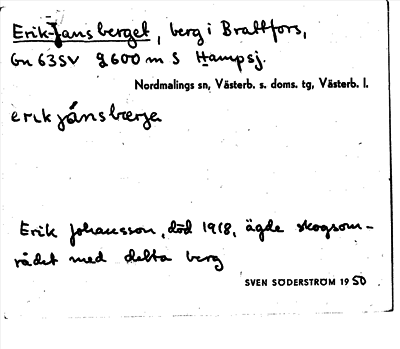 Erik-Jansberget, berg i Brattfors,
Gn 63SV 9600 m S Hampsj.
Nordmalings sn, Västerb. s. doms. tg, Västerb. l.
erikjánsbærje
Erik Johansson, död 1918, ägde skogsom-
rådet med detta berg
SVEN SÖDERSTRÖM 1950